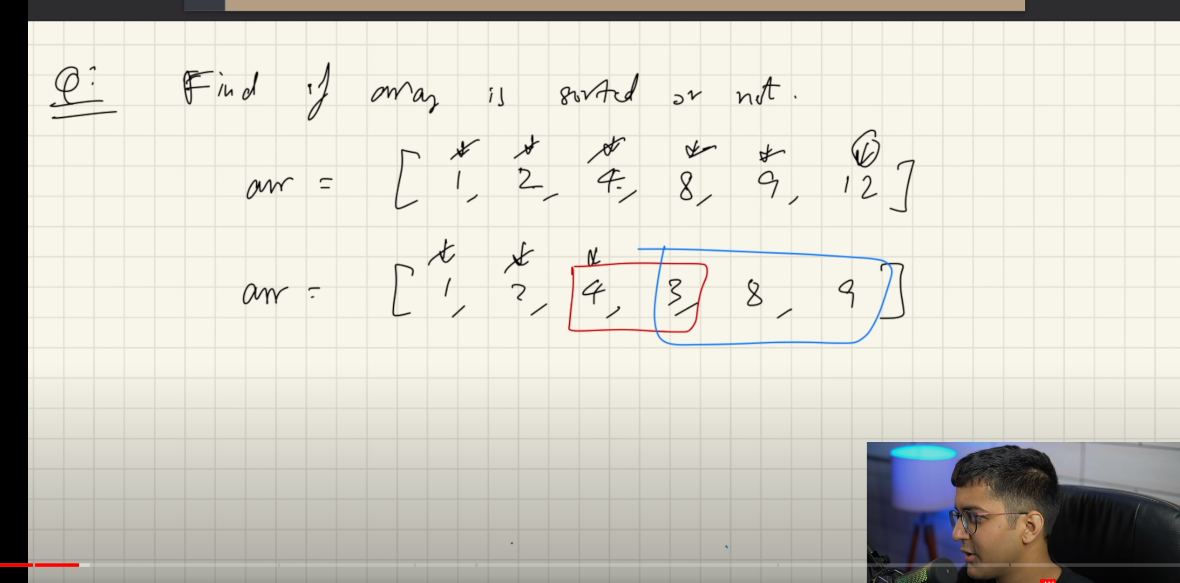 Q:- Find if array is sorted or not.
arr = [ 1, 2, 4, 8, 9, 12 ]
arr = [ 1, 2, 4, 3, 8, 9 ]